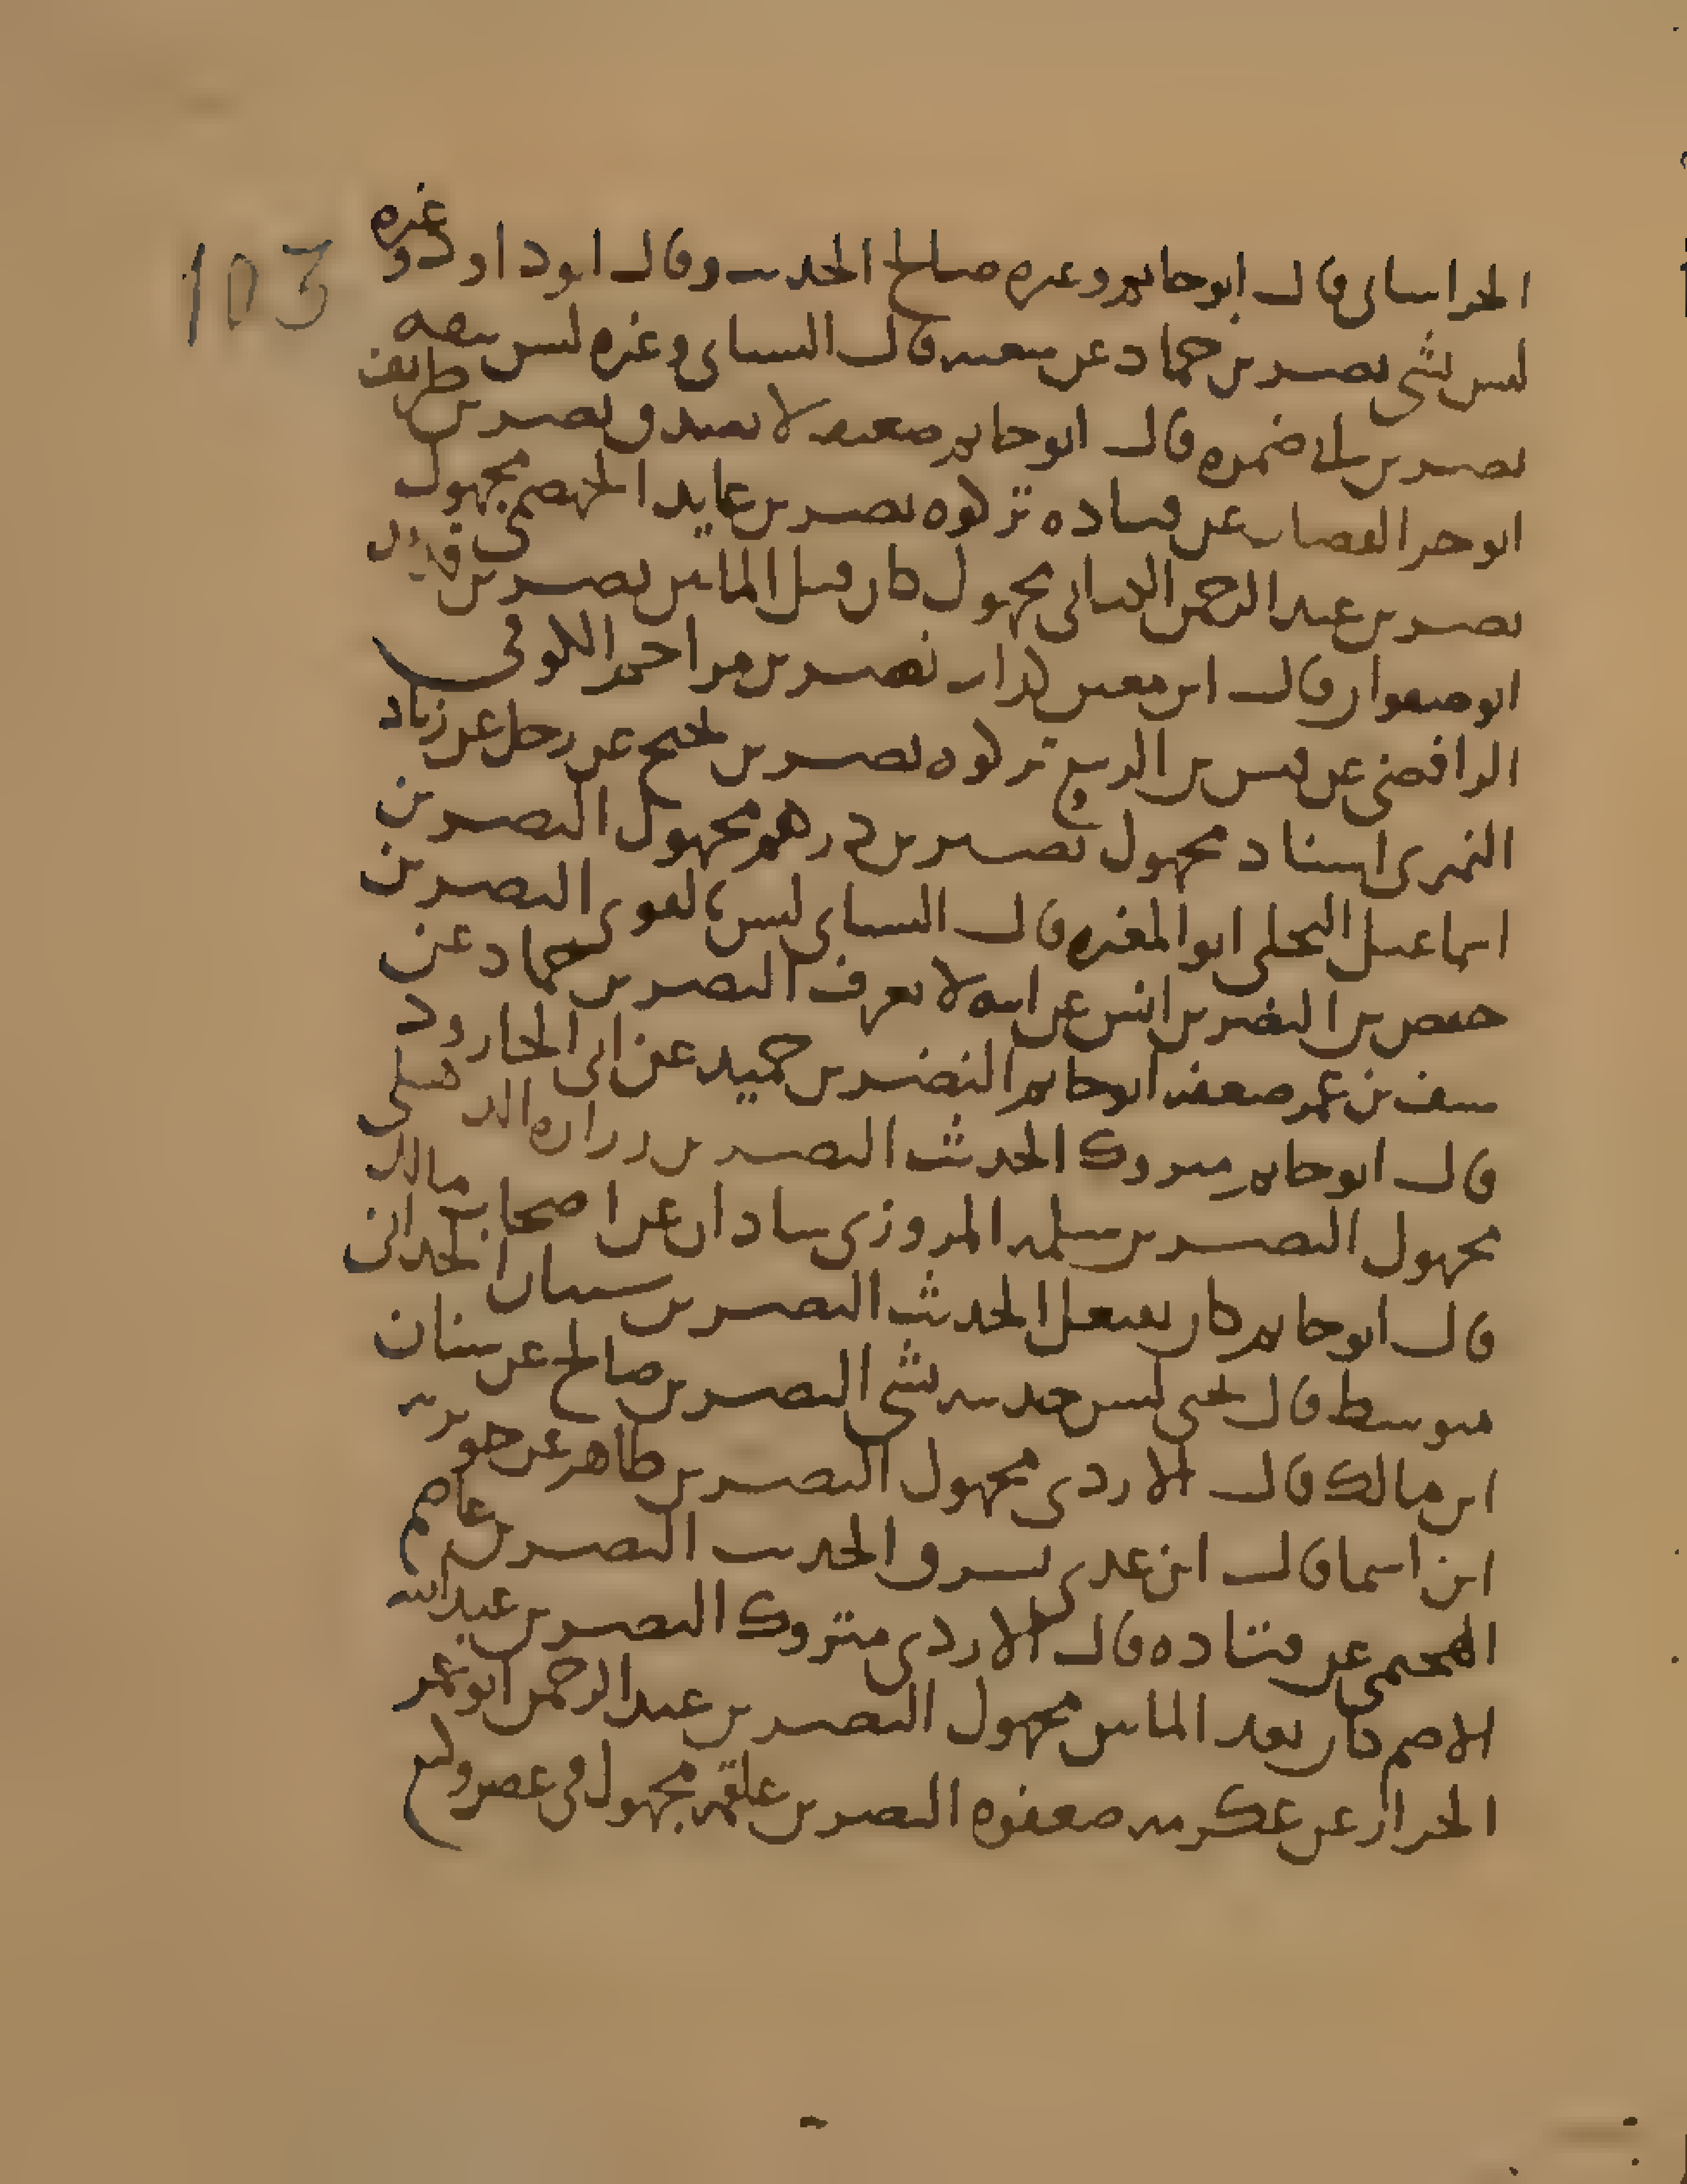 103
الخراساني قال ابو حاتم وغيره صالح الحديث وقال ابو داود وغيره
ليس بشي نصر بن حماد عن شعبه قال النساي وغيره ليس بثقه
نصر بن ابي ضمره قال ابو حاتم ضعيف لا يصدق نصر بن طريف
ابو جزء القصاب عن قتاده تركوه نصر بن عايد الجهضمي مجهول
نصر بن عبد الرحمن الكناني مجهول كان قبل المايتين نصر بن
ابو صفوان قال ابن معين كذاب نصر بن مزاحم الكوفي
الرافضي عن قيس بن الربيع تركوه نصر بن نجيح عن رجل عن زياد
النميري اسناد مجهول نصير بن درهم مجهول النضر بن
اسماعيل البجلي ابو المغيره قال النساي ليس بالقوي النضر بن
حفص بن النضر بن انس عن ابيه لا يعرف النضر بن حماد عن
سيف بن عمر ضعفه ابو حاتم النضر بن حميد عن ابي الجارود
قال ابو حاتم متروك الحديث النضر بن زراره الذهلي
مجهول النضر بن سلمه المروزي شاذان عن اصحاب مالك
قال ابو حاتم كان يفتعل الحديث النضر بن شيبان الحداني
متوسط قال يحيى ليس حديثه بشي النضر بن صالح عن سنان
ابن مالك قال الازدي مجهول النضر بن طاهر عن جويريه
ابن اسما قال ابن عدي يسرق الحديث النضر بن عاصم
الهجيمي عن قتاده قال الازدي متروك النضر بن عبد الله
الاصم كان بعد المايتين مجهول النضر بن عبد الرحمن ابو عمر
الخزاز عن عكرمه ضعفوه النضر بن علقمه مجهول في عصر وكيع